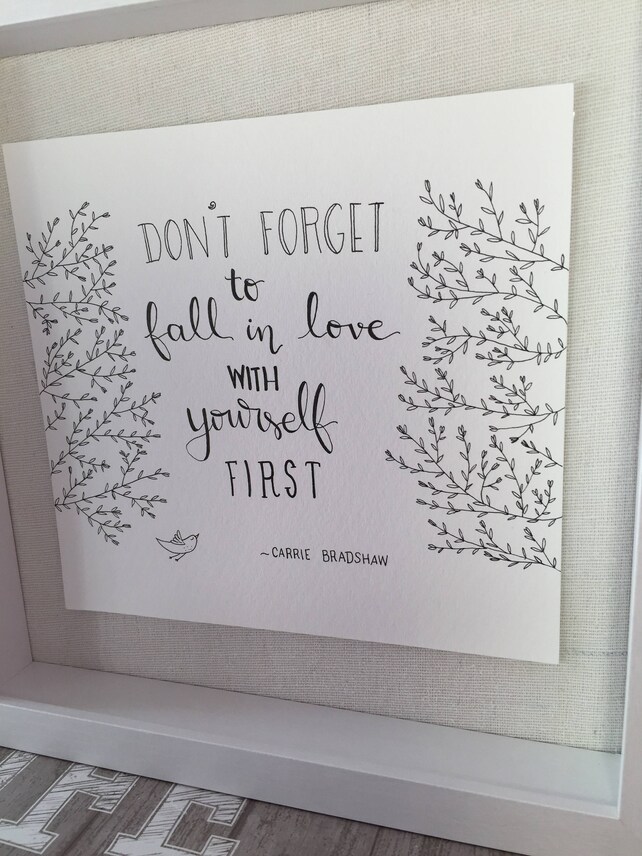 DON'T FORGET
to
fall in love
WITH
yourself
FIRST
~CARRIE BRADSHAW